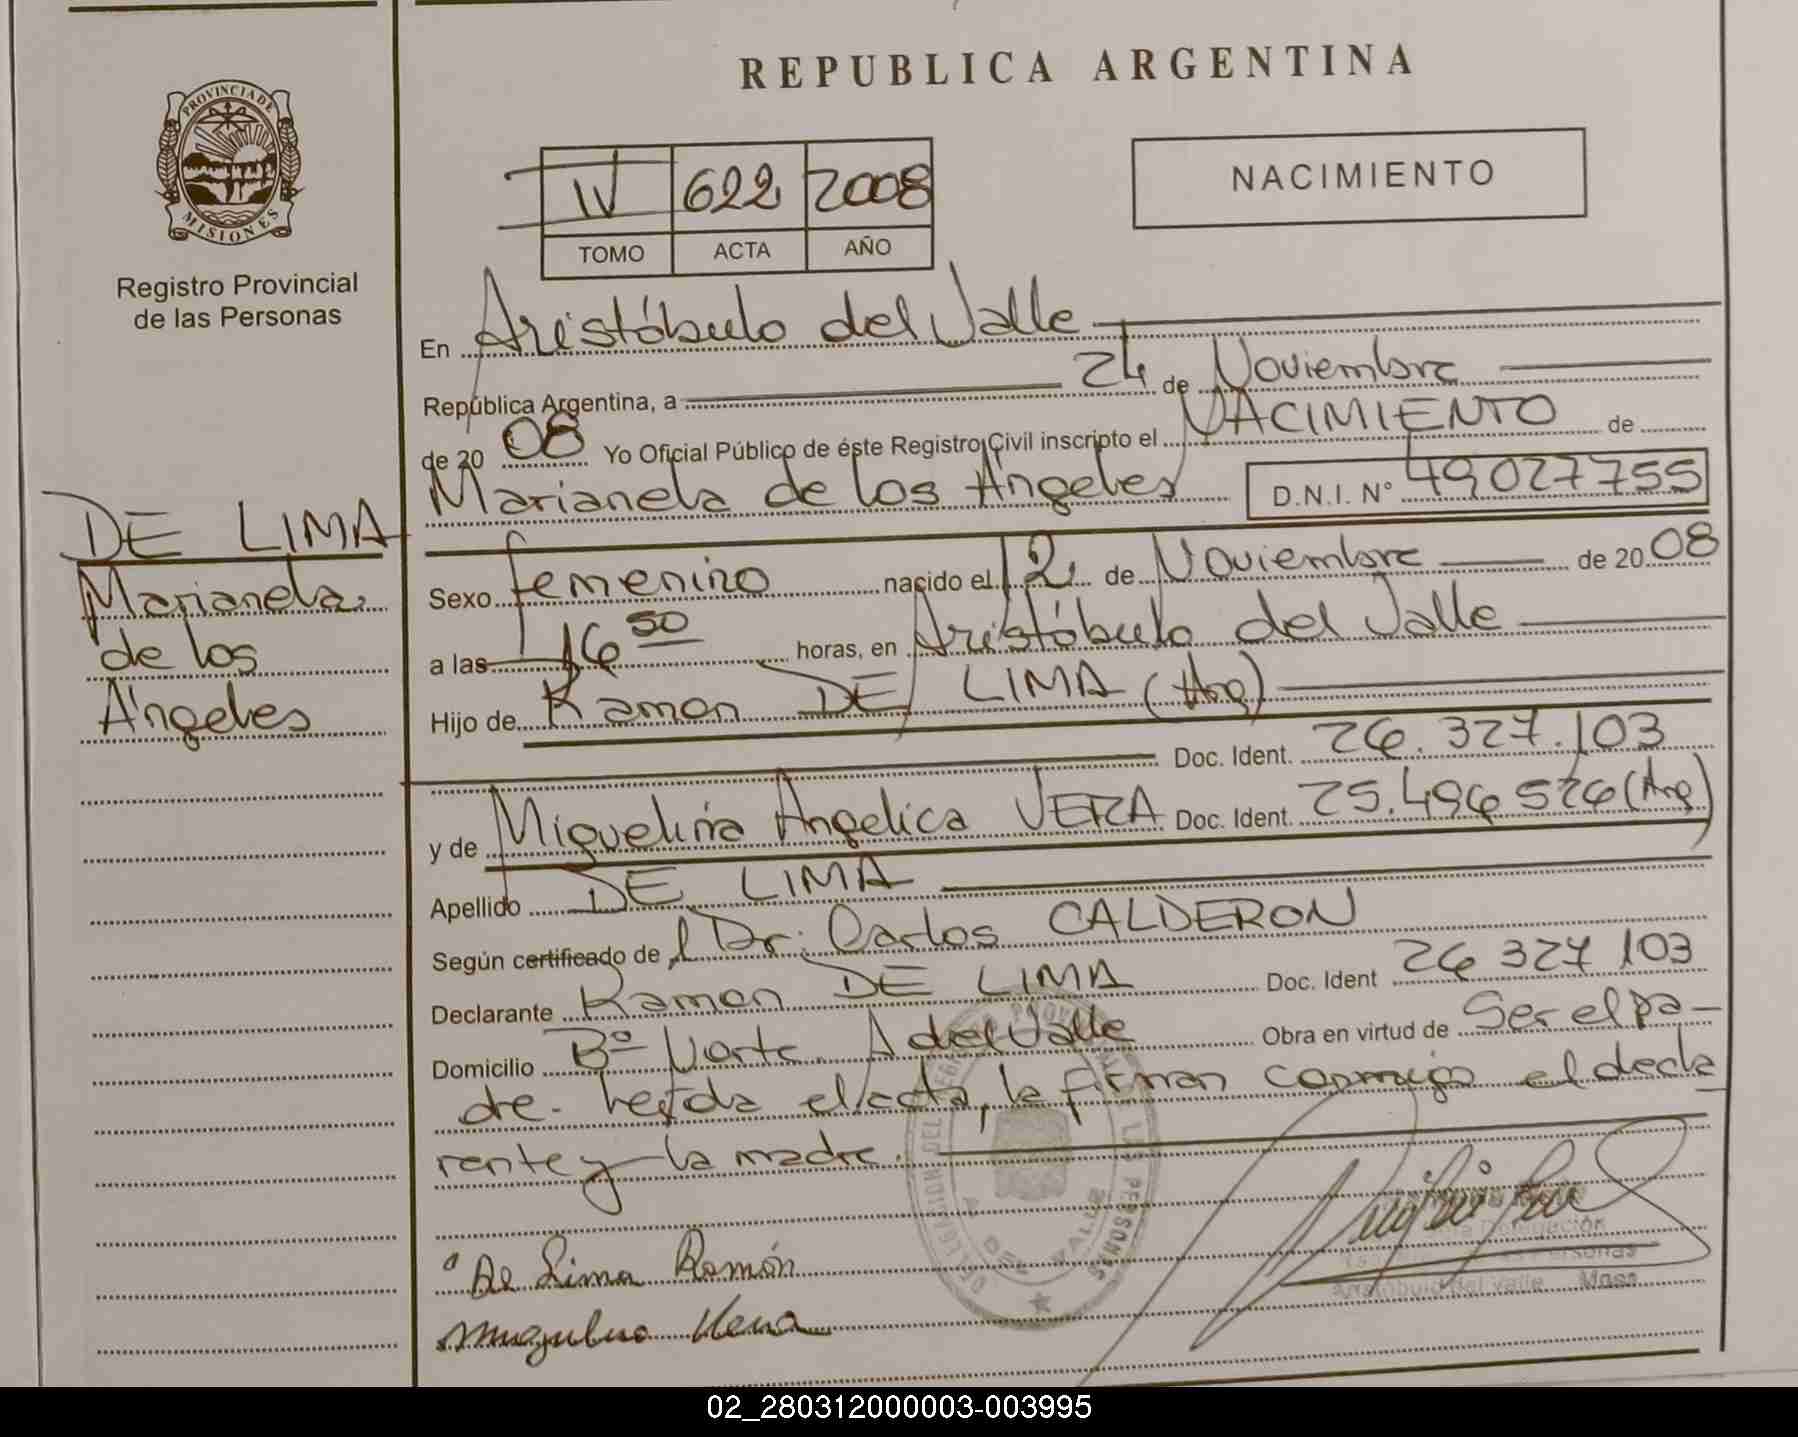 REPUBLICA ARGENTINA
PROVINCIA DE
MISIONES
Registro Provincial
de las Personas
IV 622 2008
TOMO ACTA AÑO
NACIMIENTO
En Aristóbulo del Valle
República Argentina, a 24 de Noviembre
de 2008 Yo Oficial Público de éste Registro Civil inscripto el NACIMIENTO de
Marianela de los Ángeles D.N.I. N° 49027755
DE LIMA
Marianela
de los
Ángeles
Sexo femenino nacido el 12 de Noviembre de 2008
a las 16 50 horas, en Aristóbulo del Valle
Hijo de Ramon DE LIMA (Arg)
Doc. Ident. 26.327.103
y de Miguelina Angelica VERA Doc. Ident. 25.496526 (Arg)
Apellido DE LIMA
Según certificado de l Dr. Carlos CALDERON
Declarante Ramon DE LIMA Doc. Ident 26 327 103
Domicilio Bº Norte A del Valle Obra en virtud de Ser el pa-
dre. Leída el acta, la firman conmigo el decla
rante y la madre.
DELEGACION DEL REGISTRO PROVINCIAL DE LAS PERSONAS
A DEL VALLE
De Lima Ramón
Miguelina Vera
Delegación
Personas
Aristóbulo del Valle Mnes.
02_280312000003-003995